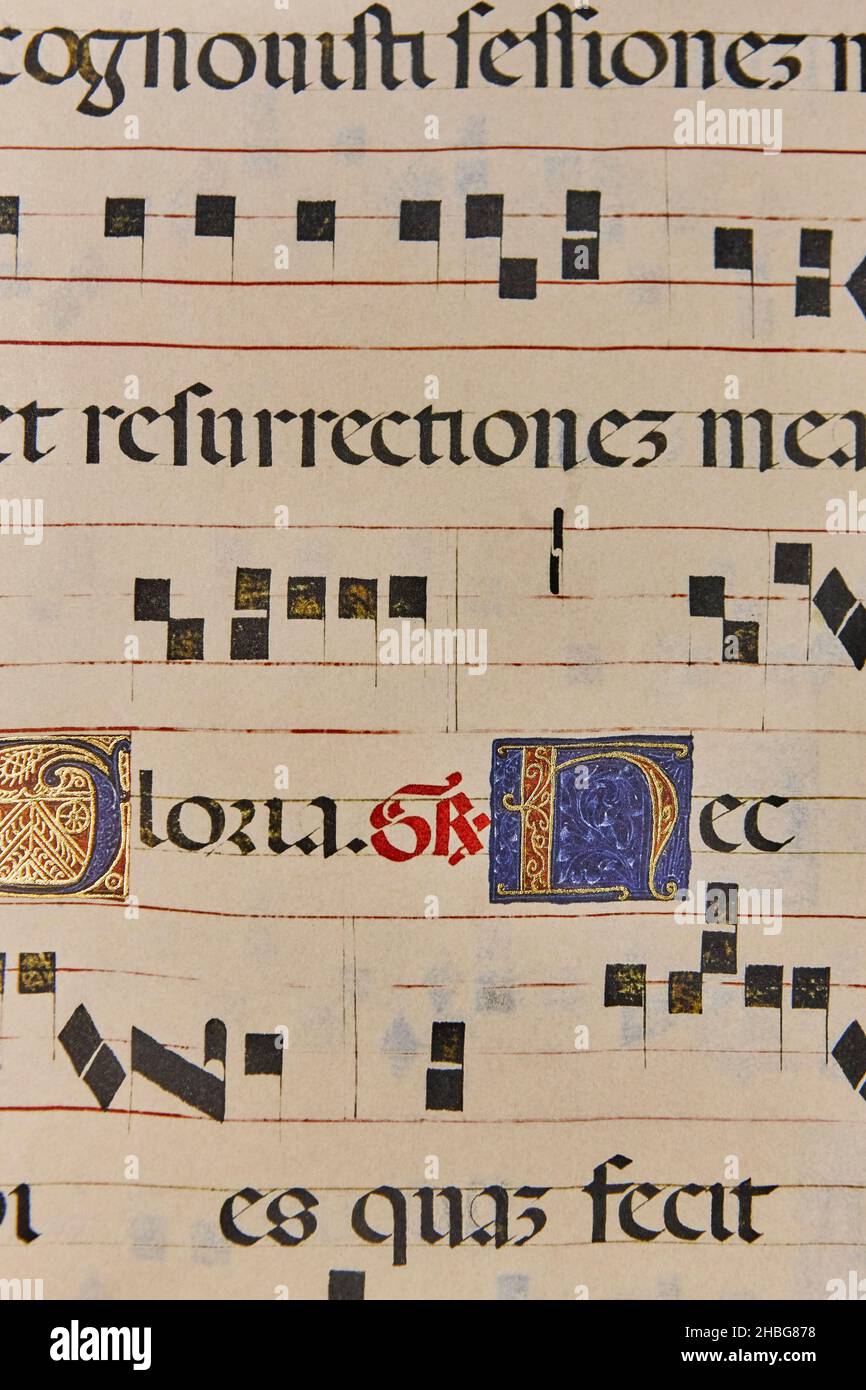 cognouiſti ſeſſionez m
et reſurrectionez mea
Gloria. Hec
es quaz fecit
alamy
Image ID: 2HBG878
www.alamy.com